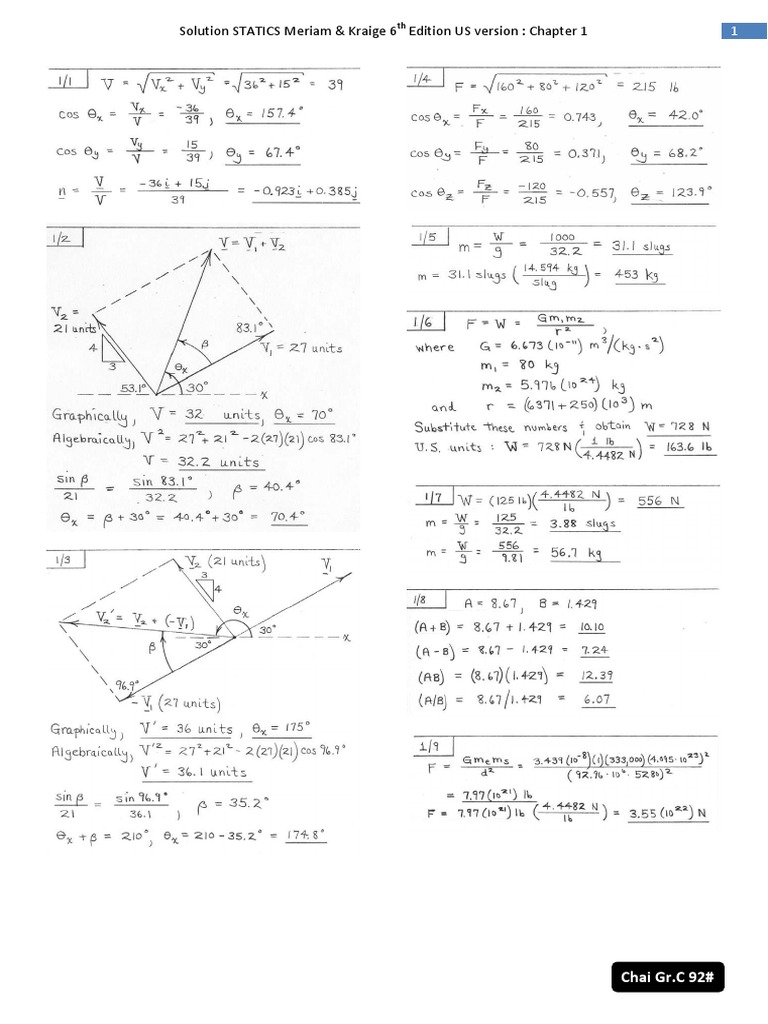 Solution STATICS Meriam & Kraige 6th Edition US version : Chapter 1
1
1/1 V = √(Vx² + Vy²) = √(36² + 15²) = 39
cos θx = Vx/V = -36/39 , θx = 157.4°
cos θy = Vy/V = 15/39 , θy = 67.4°
n = V/V = (-36i + 15j)/39 = -0.923i + 0.385j
1/2
V = V1 + V2
V2 = 21 units
4
3
83.1°
β
V1 = 27 units
θx
53.1°
30°
x
Graphically, V = 32 units, θx = 70°
Algebraically, V² = 27² + 21² - 2(27)(21) cos 83.1°
V = 32.2 units
sin β/21 = sin 83.1°/32.2 , β = 40.4°
θx = β + 30° = 40.4° + 30° = 70.4°
1/3
V2 (21 units)
V1
3
4
V2' = V2 + (-V1)
θx
30°
x
β
30°
96.9°
-V1 (27 units)
Graphically, V' = 36 units, θx = 175°
Algebraically, V'² = 27² + 21² - 2(27)(21) cos 96.9°
V' = 36.1 units
sin β/21 = sin 96.9°/36.1 , β = 35.2°
θx + β = 210°, θx = 210 - 35.2° = 174.8°
1/4 F = √(160² + 80² + 120²) = 215 lb
cos θx = Fx/F = 160/215 = 0.743, θx = 42.0°
cos θy = Fy/F = 80/215 = 0.371, θy = 68.2°
cos θz = Fz/F = -120/215 = -0.557, θz = 123.9°
1/5 m = W/g = 1000/32.2 = 31.1 slugs
m = 31.1 slugs (14.594 kg/slug) = 453 kg
1/6 F = W = Gm1m2/r² ,
where G = 6.673(10⁻¹¹) m³/(kg·s²)
m1 = 80 kg
m2 = 5.976(10²⁴) kg
and r = (6371 + 250)(10³) m
Substitute these numbers & obtain W = 728 N
U.S. units : W = 728 N (1 lb/4.4482 N) = 163.6 lb
1/7 W = (125 lb)(4.4482 N/lb) = 556 N
m = W/g = 125/32.2 = 3.88 slugs
m = W/g = 556/9.81 = 56.7 kg
1/8 A = 8.67, B = 1.429
(A + B) = 8.67 + 1.429 = 10.10
(A - B) = 8.67 - 1.429 = 7.24
(AB) = (8.67)(1.429) = 12.39
(A/B) = 8.67/1.429 = 6.07
1/9
F = Gmems/d² = 3.439(10⁻⁸)(1)(333,000)(4.095·10²³)²/(92.96·10⁶·5280)²
= 7.97(10²¹) lb
F = 7.97(10²¹) lb (4.4482 N/lb) = 3.55(10²²) N
Chai Gr.C 92#